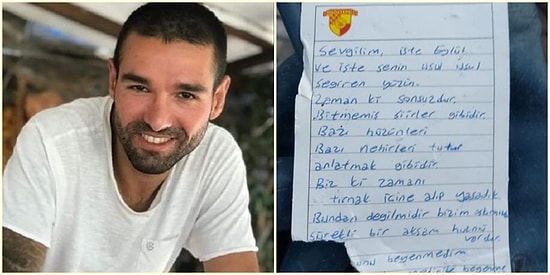 Sevgilim, işte Eylül
ve işte senin usul usul
seğiren yüzün.
Zaman ki sonsuzdur.
Bitmemiş şiirler gibidir.
Bazı hüzünleri
Bazı nehirleri tutup
anlatmak gibidir.
Biz ki zamanı
tırnak içine alıp yaşadık
Bundan değilmidir bizim aşkımızın
sürekli bir akşam hüznü
vardır.
beğenmedim